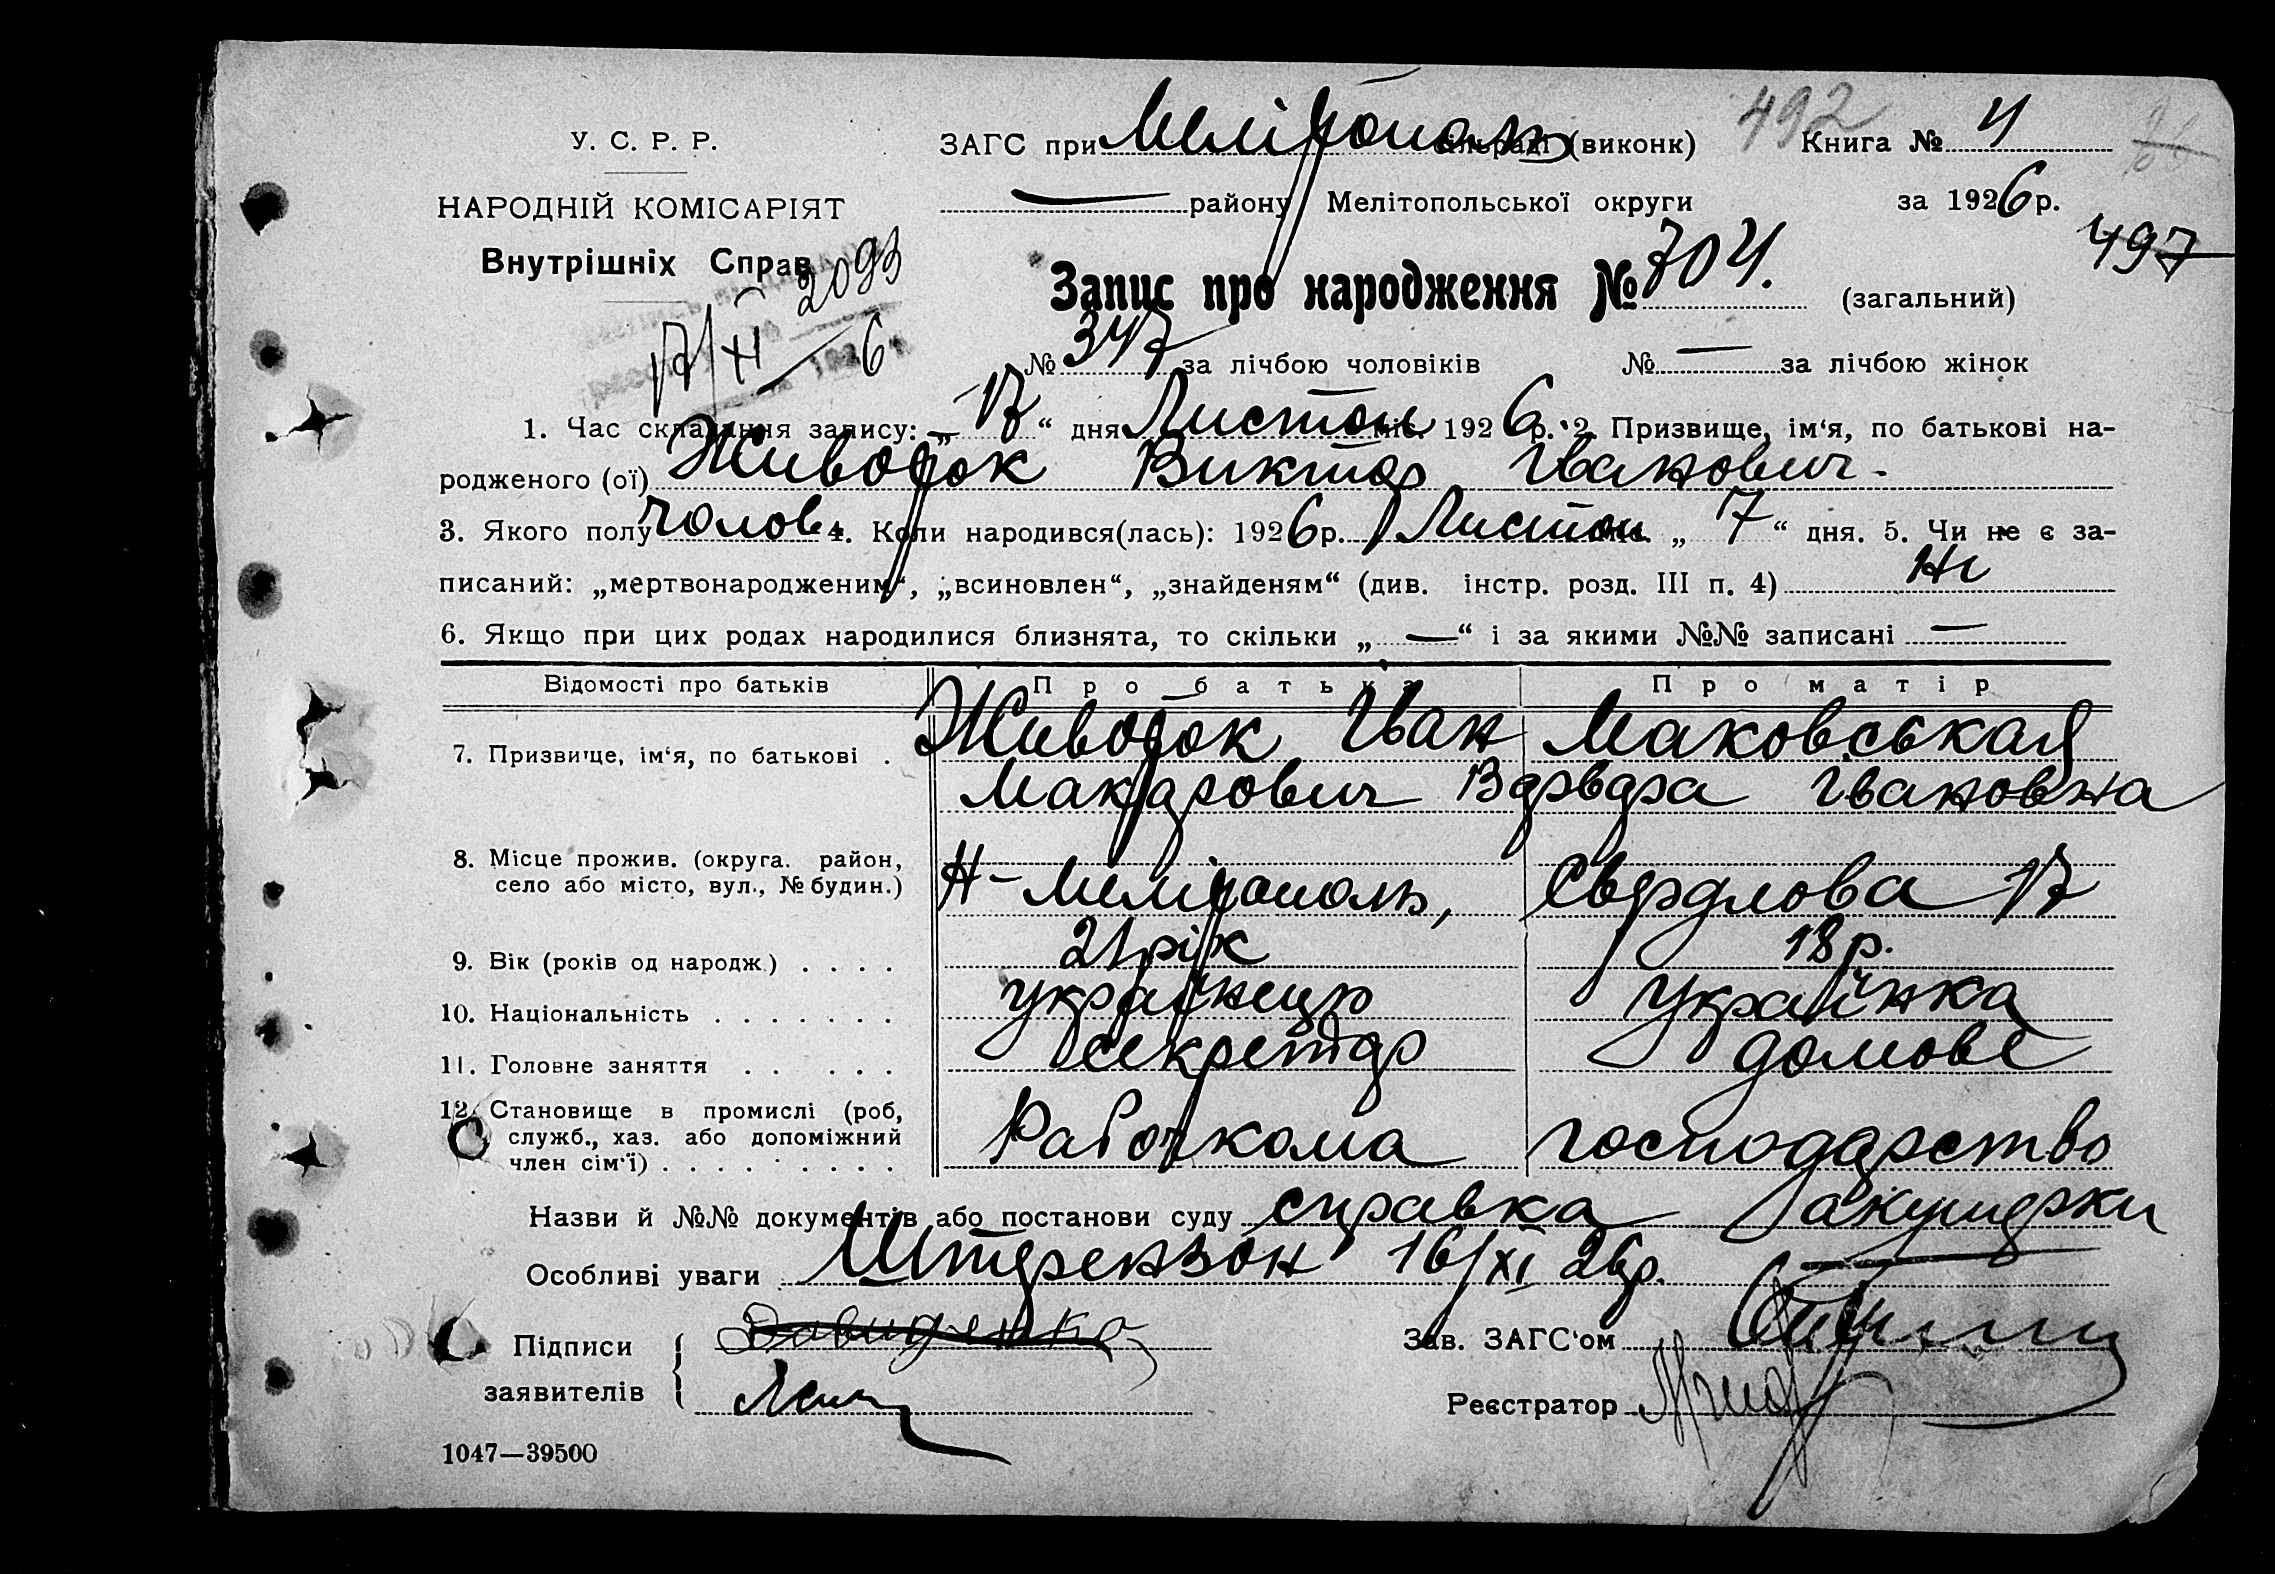 У. С. Р. Р.
ЗАГС при Мелітополь (виконк) 492 Книга № 4
НАРОДНІЙ КОМІСАРІЯТ
— району Мелітопольської округи за 1926 р.
497
Внутрішніх Справ
2093
17/XI 6
Запис про народження № 704. (загальний)
№ 347 за лічбою чоловіків № — за лічбою жінок
1. Час складання запису: „17“ дня Листоп міс. 1926 р. 2. Призвище, ім‘я, по батькові на-
родженого (ої) Животок Виктор Іванович.
3. Якого полу чолов 4. Коли народився(лась): 1926 р. Листоп. „7“ дня. 5. Чи не є за-
писаний: „мертвонародженим“, „всиновлен“, „знайденям“ (див. інстр. розд. III п. 4) Ні
6. Якщо при цих родах народилися близнята, то скільки „—“ і за якими №№ записані —
Відомості про батьків Про батька Про матір
7. Призвище, ім‘я, по батькові . Животок Іван Маковськая
Макарович Варвара Івановна
8. Місце прожив. (округа. район,
село або місто, вул., № будин.) Н-Мелітополь, Свердлова 17
9. Вік (років од народж.) . . . . 21 рік 18 р.
10. Національність . . . . . . . українець українка
11. Головне заняття . . . . . секретар домове
12. Становище в промислі (роб,
служб., хаз. або допоміжний
член сім‘ї) . . . . . . . . . Рабочкома господарство
Назви й №№ документів або постанови суду справка акушерки
Особливі уваги Штерензон 16/XI 26 р.
Підписи
заявителів
Зав. ЗАГС‘ом
Реєстратор
1047—39500